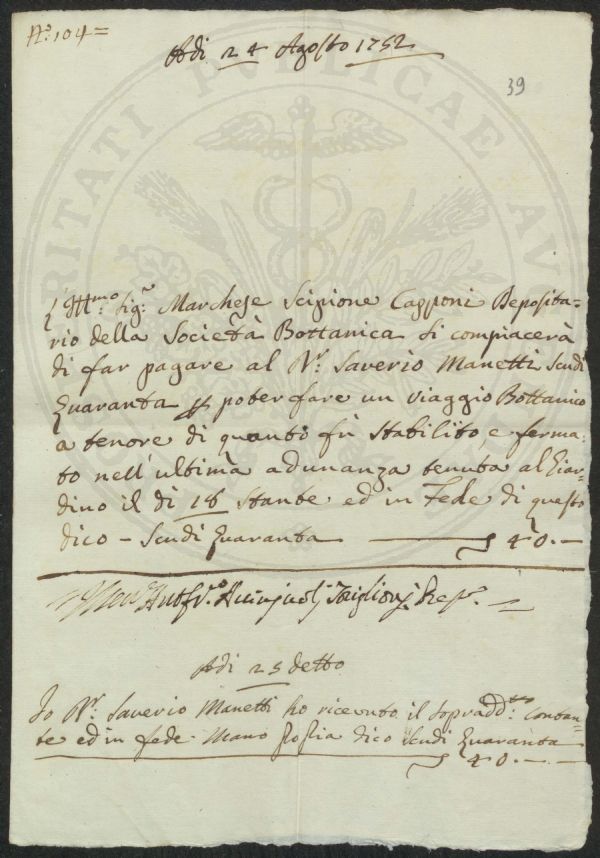 N.º 104=
Adi 24 Agosto 1752
39
L'Ill.mo Sig.r Marchese Scipione Capponi Deposita=
rio della Società Bottanica si compiacerà
di far pagare al D.r Saverio Manetti Scudi
Quaranta p poter fare un viaggio Bottanico
a tenore di quanto fù Stabilito, e ferma=
to nell'ultima adunanza tenuta al Giar=
dino il dì 18 Stante ed in Fede di questo
dico - Scudi Quaranta — 40.—
Adi 25 detto
Io D.r Saverio Manetti ho ricevuto il sopradd.tto Contan=
te ed in fede Mano Propria dico Scudi Quaranta
40.—